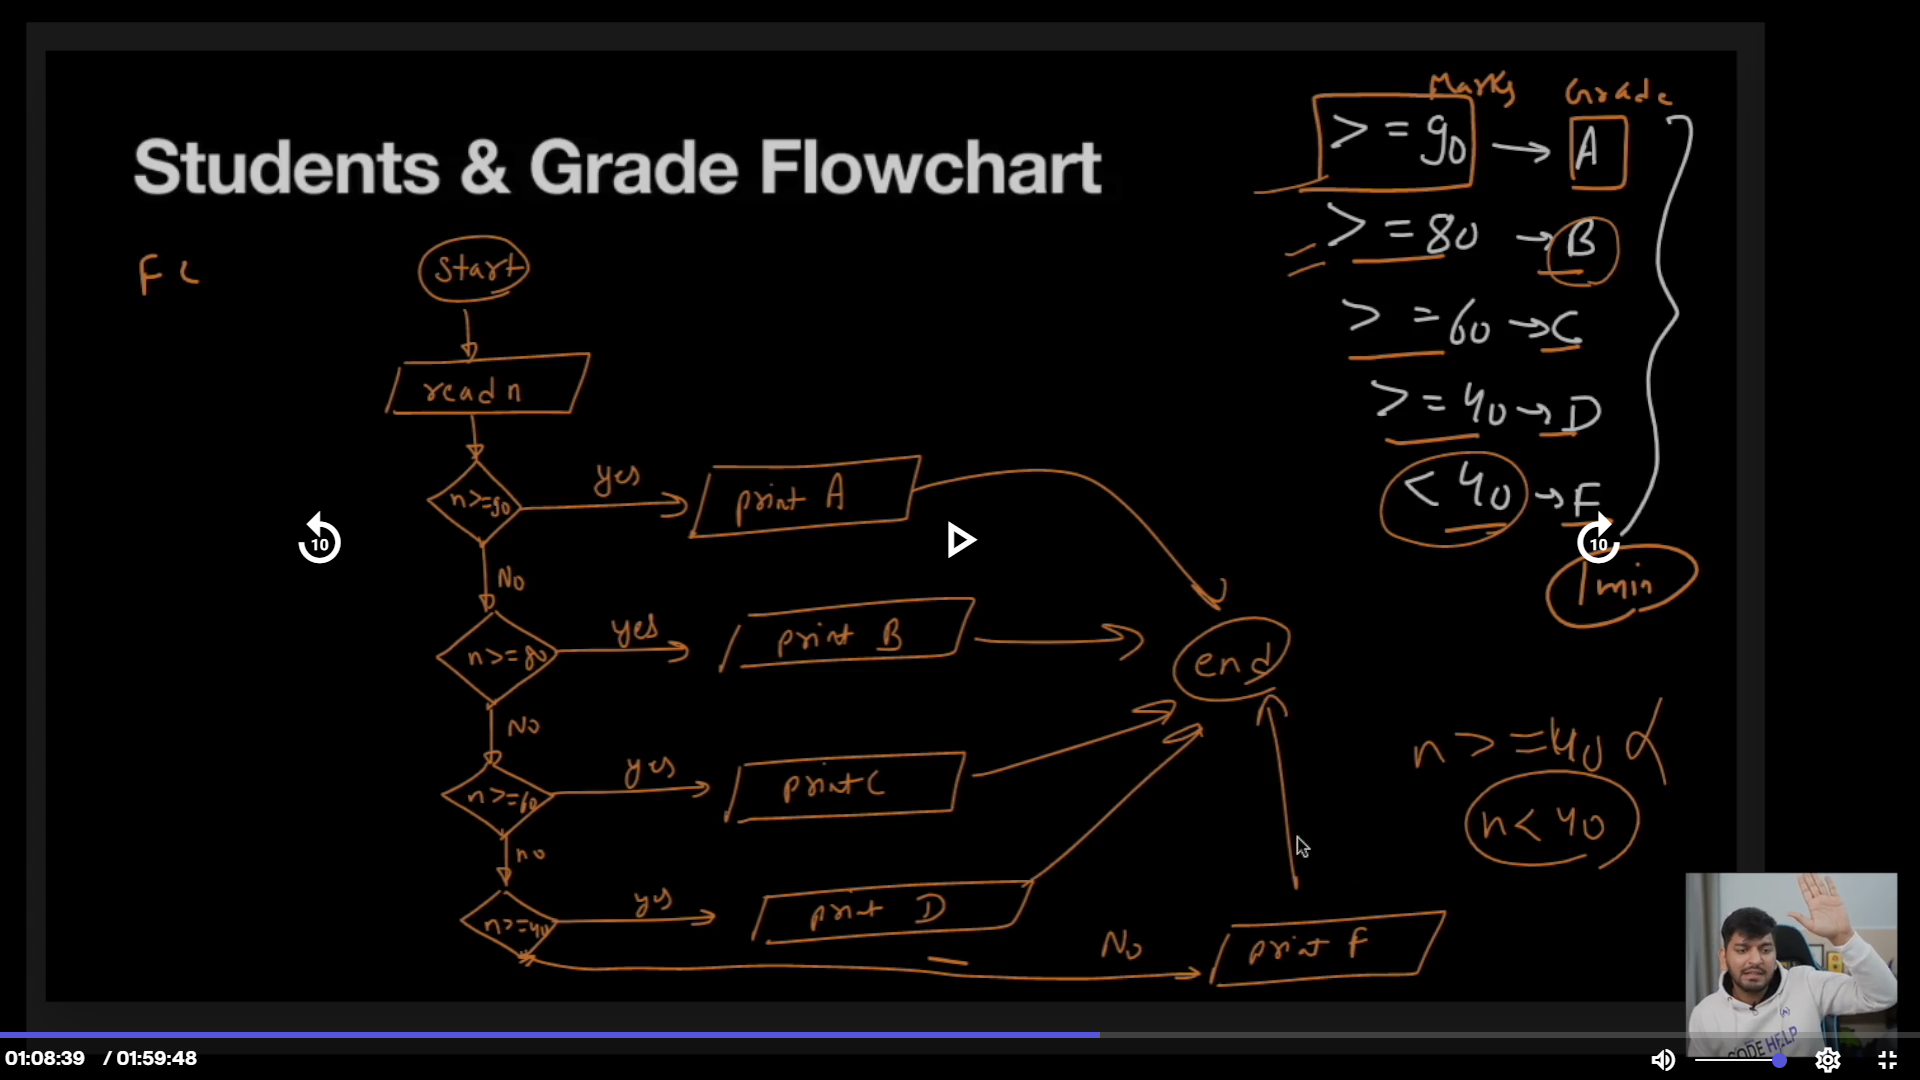 Students & Grade Flowchart
Marks Grade
>=90 → A
>=80 → B
>=60 → C
>=40 → D
<40 → F
1 min
F C
Start
read n
n>=90
yes
print A
No
n>=80
yes
print B
end
No
n>=60
yes
print C
no
n>=40
yes
print D
No
print F
n>=40
n<40
10
10
CODE HELP
01:08:39 / 01:59:48